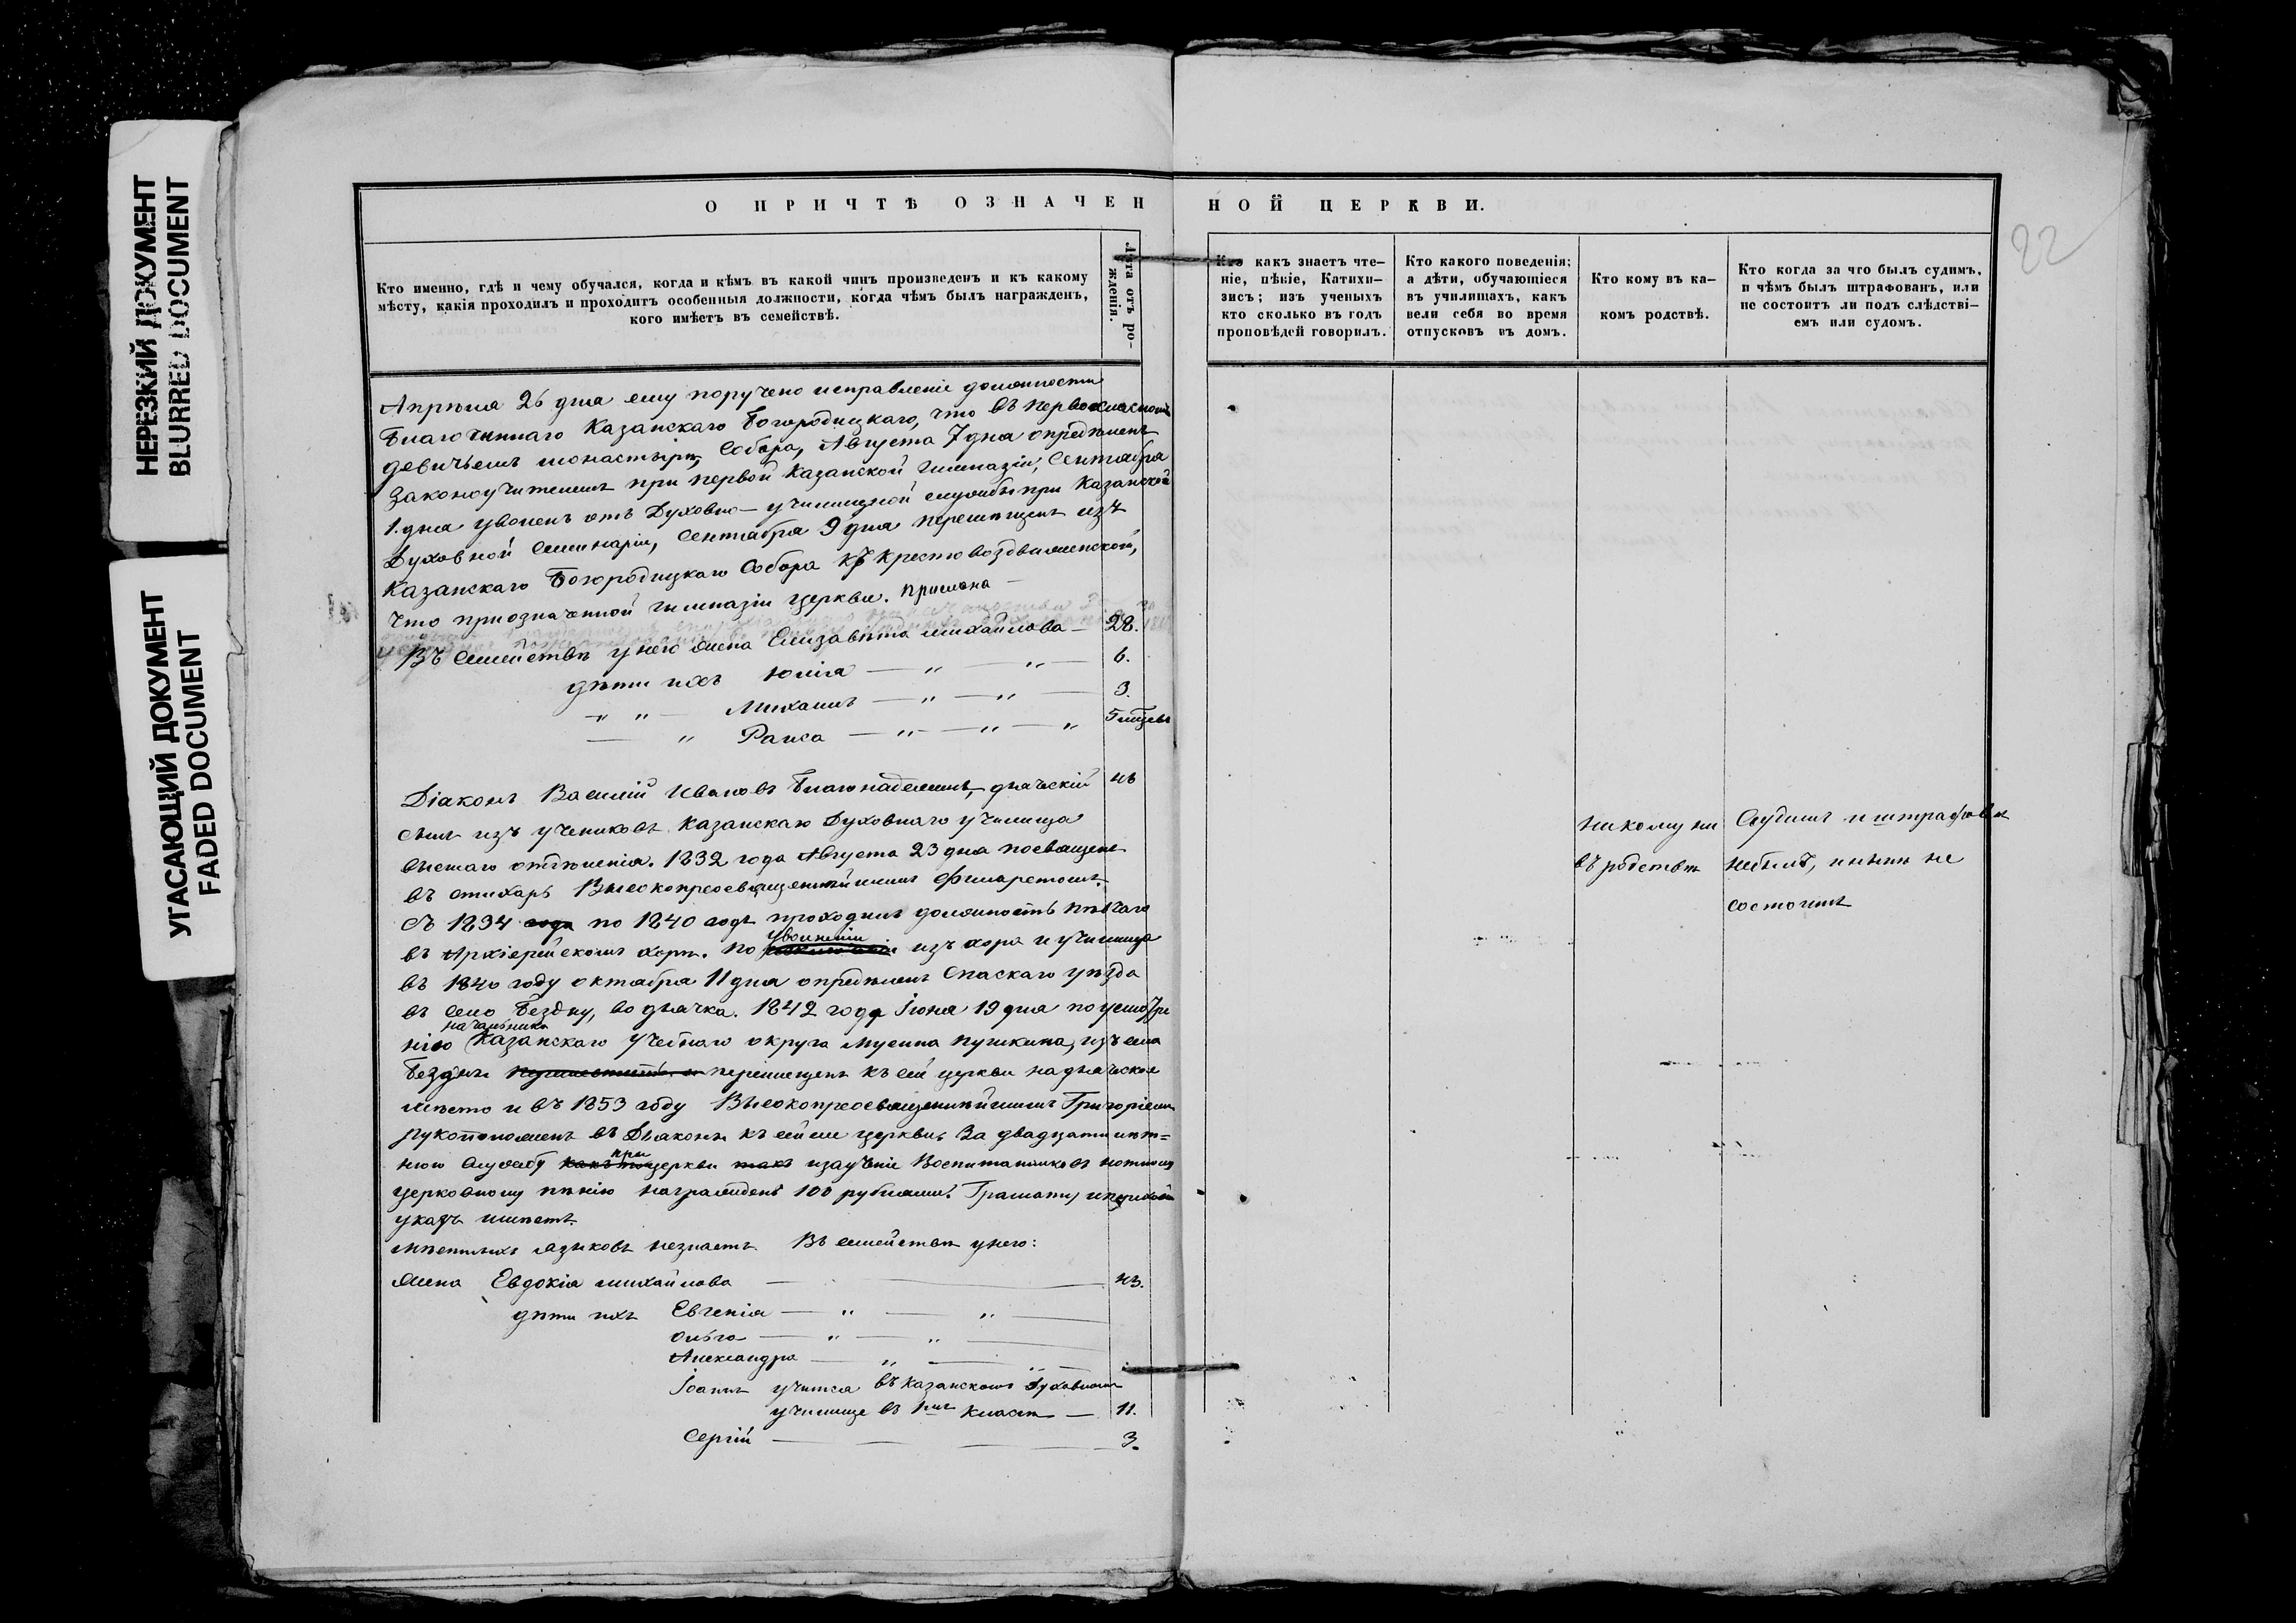 НЕРЕЗКИЙ ДОКУМЕНТ
BLURRED DOCUMENT
УГАСАЮЩИЙ ДОКУМЕНТ
FADED DOCUMENT
22
О ПРИЧТѢ ОЗНАЧЕННОЙ ЦЕРКВИ.
Кто именно, гдѣ и чему обучался, когда и кѣмъ въ какой чинъ произведенъ и къ какому
мѣсту, какія проходилъ и проходитъ особенныя должности, когда чѣмъ былъ награжденъ,
кого имѣетъ въ семействѣ.
Лѣта отъ ро-
жденія.
Кто какъ знаетъ чте-
ніе, пѣніе, Катихи-
зисъ; изъ ученыхъ
кто сколько въ годъ
проповѣдей говорилъ.
Кто какого поведенія;
а дѣти, обучающіеся
въ училищахъ, какъ
вели себя во время
отпусковъ въ домъ.
Кто кому въ ка-
комъ родствѣ.
Кто когда за что былъ судимъ,
и чѣмъ былъ штрафованъ, или
не состоитъ ли подъ слѣдстві-
емъ или судомъ.
Апрѣля 26 дня ему поручено исправленіе должности
Благочиннаго Казанскаго Богородицкаго, что въ первокласномъ
девичьемъ монастырѣ, Собора, Августа 7 дня опредѣленъ
Законоучителемъ при первой Казанской Гимназіи, Сентября
1. дня уволенъ отъ Духовно-училищной службы при Казанской
Духовной Семинаріи, Сентября 9 дня перемѣщенъ изъ
Казанскаго Богородицкаго Собора къ Крестовоздвиженской,
что при означенной гимназіи церкви.
Въ семействѣ у него жена Елизавета Михайлова — 28.
дѣти ихъ Юлія — " — " — 6.
— " " — Михаилъ — " — " — 3.
— " Раиса — " — " — " 5 мѣсяц.
Діаконъ Василій Ивановъ Благонадеждинъ, дьяческій
сынъ изъ учениковъ Казанскаго Духовнаго училища
высшаго отдѣленія. 1832 года Августа 23 дня посвященъ
въ стихарь Высокопреосвященнѣйшимъ Филаретомъ.
Съ 1834 года по 1840 годъ проходилъ должность пѣвчаго
въ Архіерейскомъ хорѣ. По увольненіи изъ хора и училища
въ 1840 году октября 11 дня опредѣленъ Спаскаго уѣзда
въ село Бездну, во дьячка. 1842 года Іюня 19 дня по усмотре
нію начальника Казанскаго Учебнаго округа Мусина Пушкина, изъ села
Бездны перемещенъ къ сей церкви на дьяческое
мѣсто и въ 1853 году Высокопреосвященнѣйшимъ Григоріемъ
рукоположенъ въ Діаконы къ сей же церкви. За двадцати лѣт=
нюю службу при церкви и заученіе Воспитанниковъ нотному
церковному пѣнію награжденъ 100 рублями. Грамату и
указъ имѣетъ.
Мѣстныхъ языковъ незнаетъ. Въ семействѣ у него:
Жена Евдокія Михайлова — 43.
дѣти ихъ Евгенія — " — " —
Ольга — " — " —
Александра — " — " —
Іоаннъ учится въ Казанскомъ Духовномъ
училище въ классѣ — 11.
Сергій — 3.
никому ни
въ родствѣ
Судимъ и штрафованъ
небылъ, и нынѣ не
состоитъ